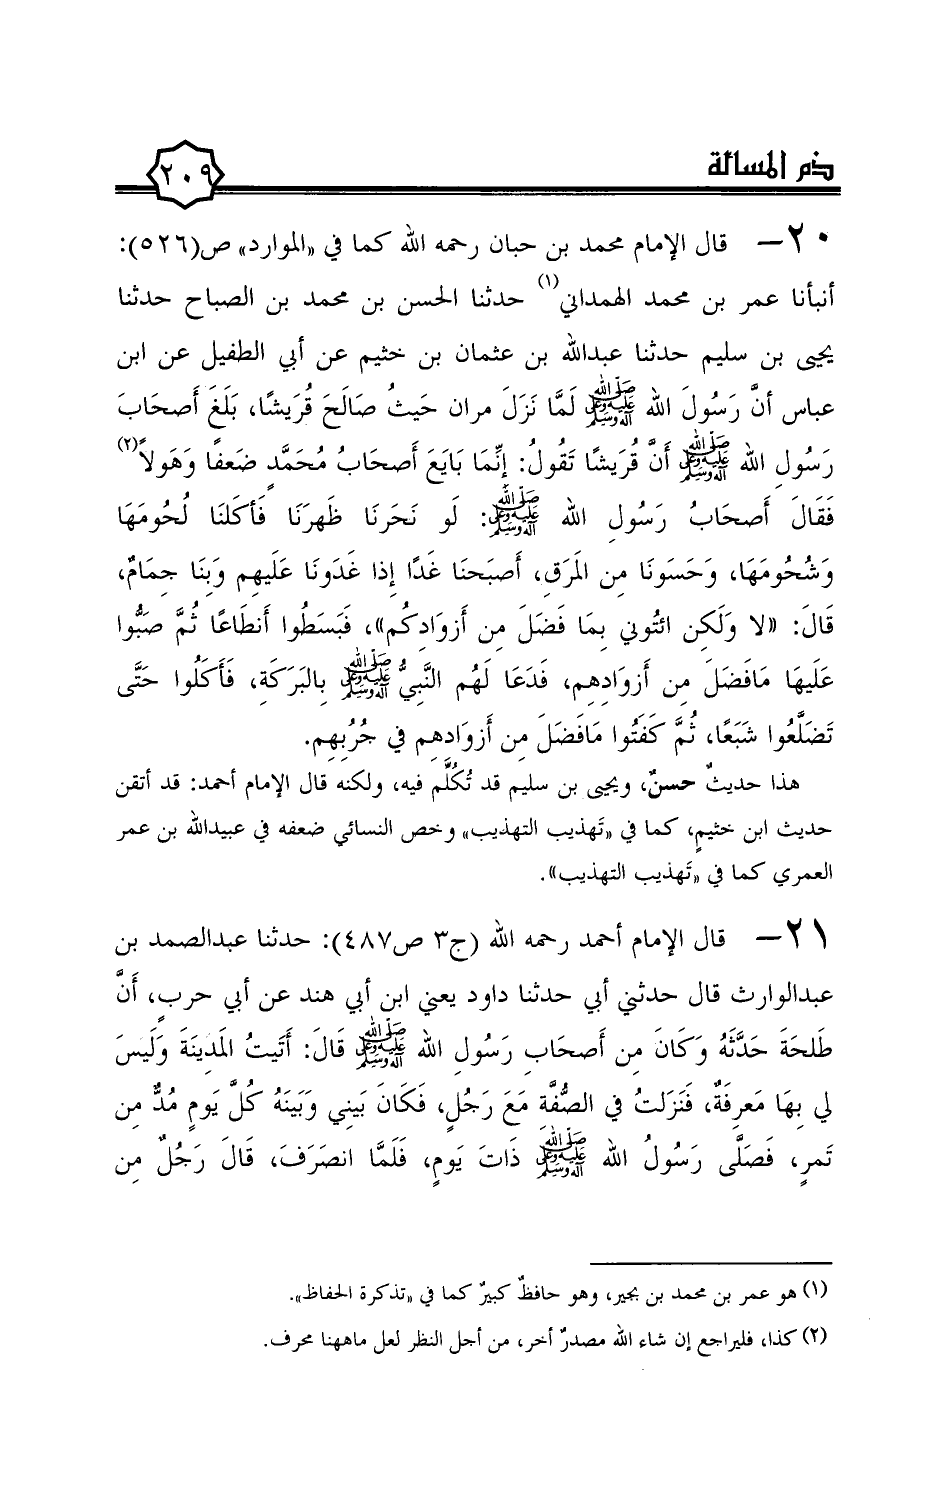 ذم المسألة
٢٠٩
٢٠- قال الإمام محمد بن حبان رحمه الله كما في «الموارد» ص(٥٢٦):
أنبأنا عمر بن محمد الهمداني(١) حدثنا الحسن بن محمد بن الصباح حدثنا
يحيى بن سليم حدثنا عبدالله بن عثمان بن خثيم عن أبي الطفيل عن ابن
عباس أنَّ رَسُولَ الله ﷺ لَمَّا نَزَلَ مران حَيثُ صَالَحَ قُرَيشًا، بَلَغَ أَصحَابَ
رَسُولِ الله ﷺ أَنَّ قُرَيشًا تَقُولُ: إِنَّمَا بَايَعَ أَصحَابُ مُحَمَّدٍ ضَعفًا وَهَولاً(٢)
فَقَالَ أَصحَابُ رَسُولِ الله ﷺ: لَو نَحَرنَا ظَهرَنَا فَأَكلنَا لُحُومَهَا
وَشُحُومَهَا، وَحَسَونَا مِن المَرَقِ، أَصبَحنَا غَدًا إِذا غَدَونَا عَلَيهِم وَبِنَا جِمَامٌ،
قَالَ: «لا وَلَكِن ائتُونِي بِمَا فَضَلَ مِن أَزوَادِكُم»، فَبَسَطُوا أَنطَاعًا ثُمَّ صَبُّوا
عَلَيهَا مَافَضَلَ مِن أَزوَادِهِم، فَدَعَا لَهُم النَّبِيُّ ﷺ بِالبَرَكَةِ، فَأَكَلُوا حَتَّى
تَضَلَّعُوا شَبَعًا، ثُمَّ كَفَتُوا مَافَضَلَ مِن أَزوَادِهِم فِي جُرُبِهِم.
هذا حديثٌ حسنٌ، ويحيى بن سليم قد تُكُلِّم فيه، ولكنه قال الإمام أحمد: قد أتقن
حديث ابن خثيمٍ، كما في «تَهذيب التهذيب» وخص النسائي ضعفه في عبيدالله بن عمر
العمري كما في «تَهذيب التهذيب».
٢١- قال الإمام أحمد رحمه الله (ج٣ ص٤٨٧): حدثنا عبدالصمد بن
عبدالوارث قال حدثني أبي حدثنا داود يعني ابن أبي هند عن أبي حربٍ، أَنَّ
طَلحَةَ حَدَّثَهُ وَكَانَ مِن أَصحَابِ رَسُولِ الله ﷺ قَالَ: أَتَيتُ المَدِينَةَ وَلَيسَ
لِي بِهَا مَعرِفَةٌ، فَنَزَلتُ فِي الصُّفَّةِ مَعَ رَجُلٍ، فَكَانَ بَينِي وَبَينَهُ كُلَّ يَومٍ مُدٌّ مِن
تَمرٍ، فَصَلَّى رَسُولُ الله ﷺ ذَاتَ يَومٍ، فَلَمَّا انصَرَفَ، قَالَ رَجُلٌ مِن
(١) هو عمر بن محمد بن بجير، وهو حافظٌ كبيرٌ كما في «تذكرة الحفاظ».
(٢) كذا، فليراجع إن شاء الله مصدرٌ أخر، من أجل النظر لعل ماههنا محرف.